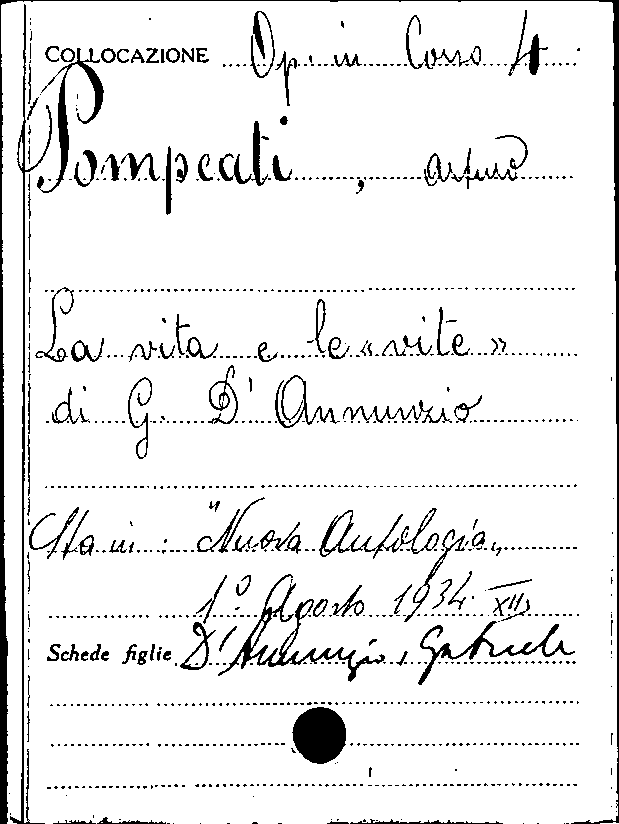 COLLOCAZIONE Op. in Corso 4
Pompeati, Arturo
La vita e le «vite»
di G. D'Annunzio
Sta in: "Nuova Antologia„
1° Agosto 1934. XII,
Schede figlie D'Annunzio, Gabriele